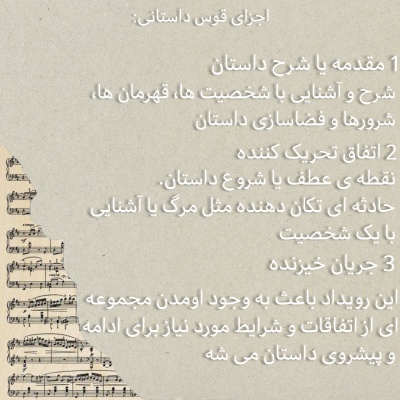 اجزای قوس داستانی:
1 مقدمه یا شرح داستان
شرح و آشنایی با شخصیت ها، قهرمان ها،
شرورها و فضاسازی داستان
2 اتفاق تحریک کننده
نقطه ی عطف یا شروع داستان.
حادثه ای تکان دهنده مثل مرگ یا آشنایی
با یک شخصیت
3 جریان خیزنده
این رویداد باعث به وجود اومدن مجموعه
ای از اتفاقات و شرایط مورد نیاز برای ادامه
و پیشروی داستان می شه